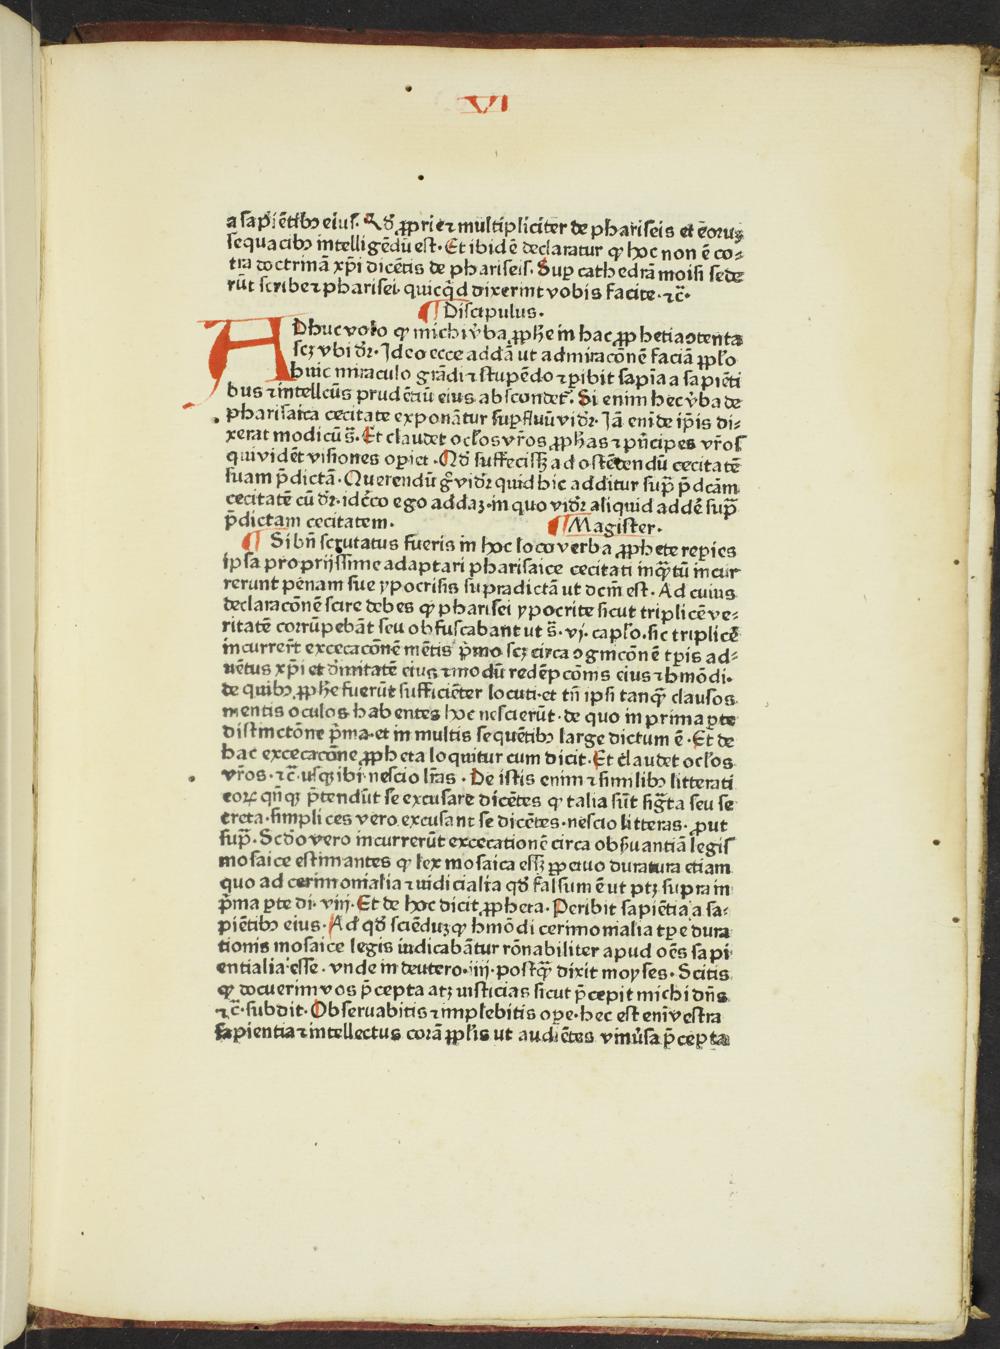 VI
a sapiētibꝫ eius. Qđ ꝓprie ⁊ multipliciter de phariseis et eoruꝫ
sequacibꝫ intelligēdū est. Et ibidē declaratur ꝙ hoc non ē cō-
tra doctrinā xp̄i dicētis de phariseis. Suꝑ cathedrā moisi sede
rūt scribe ⁊ pharisei. quicq̄d dixerint vobis facite. ⁊c̄.
¶ Discipulus.
ADhuc volo ꝙ michi v̄ba ꝓphe in hac ꝓphetia ↄtenta
scꝫ vbi dr̄. Ideo ecce addā ut admiracōnē faciā ppl̄o
huic miraculo grādi ⁊ stupēdo ⁊ ꝑibit sapīa a sapiēti
bus ⁊ intellcūs prudētiū eius abscondet᷑. Si enim hec v̄ba de
pharisaica cecitate exponātur suꝑfluū vidr̄. Iā eni de ip̄is di-
xerat modicū s̄. Et claudet ocl̄os vr̄os ꝓphas ⁊ pn̄cipes vr̄os
qui vidēt visiones oꝑiet. Qđ suffecissꝫ ad ostēdendū cecitatē
suam p̄dictā. Querendū g̊ vidr̄ quid hic additur sup̄ p̄dcām
cecitatē cū dr̄. idc̄co ego addaꝫ. in quo vidr̄ aliquid addē sup̄
p̄dictam cecitatem. ¶ Magister.
¶ Si bn̄ scrutatus fueris in hoc loco verba ꝓphete reꝑies
ipsa proprijssime adaptari pharisaice cecitati inq̄tū incur
rerunt penam sue ypocrisis supradictā ut dcm̄ est. Ad cuius
declaracōnē scire debes ꝙ pharisei ypocrite sicut triplicē ve-
ritatē corrūpebāt seu obfuscabant ut s̄. vj. capl̄o. sic triplicē
incurrerūt excecacōnē mētis p̄mo scꝫ circa ↄgnicōnē tꝑis ad-
uētus xp̄i et diuinitatē eius ⁊ modū redēpcōnis eius ⁊ hmōdi.
de quibꝫ ꝓphe fuerūt sufficiēter locuti. et tn̄ ipsi tanq̄ clausos
mentis oculos habentes hoc nescierūt. de quo in prima ꝑte
distinctōne p̄ma. et in multis sequētibꝫ large dictum ē. Et de
hac excecacōne ꝓpheta loquitur cum dicit. Et claudet ocl̄os
vr̄os. ⁊c̄. usqꝫ ibi nescio lr̄as. De istis enim ⁊ similibꝫ litterati
eoꝝ qn̄qꝫ p̄tendūt se excusare dicētes ꝙ talia sūt sig̅ta seu se
creta. simplices vero excusant se dicētes. nescio litteras. ꝓut
sup̄. Scdo vero incurrerūt excecationē circa obs̄uantiā legis
mosaice estimantes ꝙ lex mosaica essꝫ ꝓpetuo duratura etiam
quo ad cerimonialia ⁊ iudicialia qđ falsum ē ut ptꝫ supra in
p̄ma ꝑte di. viij. Et de hoc dicit ꝓpheta. Peribit sapiētia a sa-
piētibꝫ eius. Ad qđ sciēduꝫ ꝙ hmōdi cerimonialia tꝑe dura
tionis mosaice legis iudicabātur rōnabiliter apud oēs sapi
entialia esse. vnde in deutero. iiij. postq̄ dixit moyses. Scitis
ꝙ docuerim vos p̄cepta atꝫ iusticias sicut p̄cepit michi dn̄s
⁊c̄. subdit. Obseruabitis ⁊ implebitis oꝑe. hec est eni vestra
sapientia ⁊ intellectus corā ppl̄is ut audiētes vniūsa p̄cepta